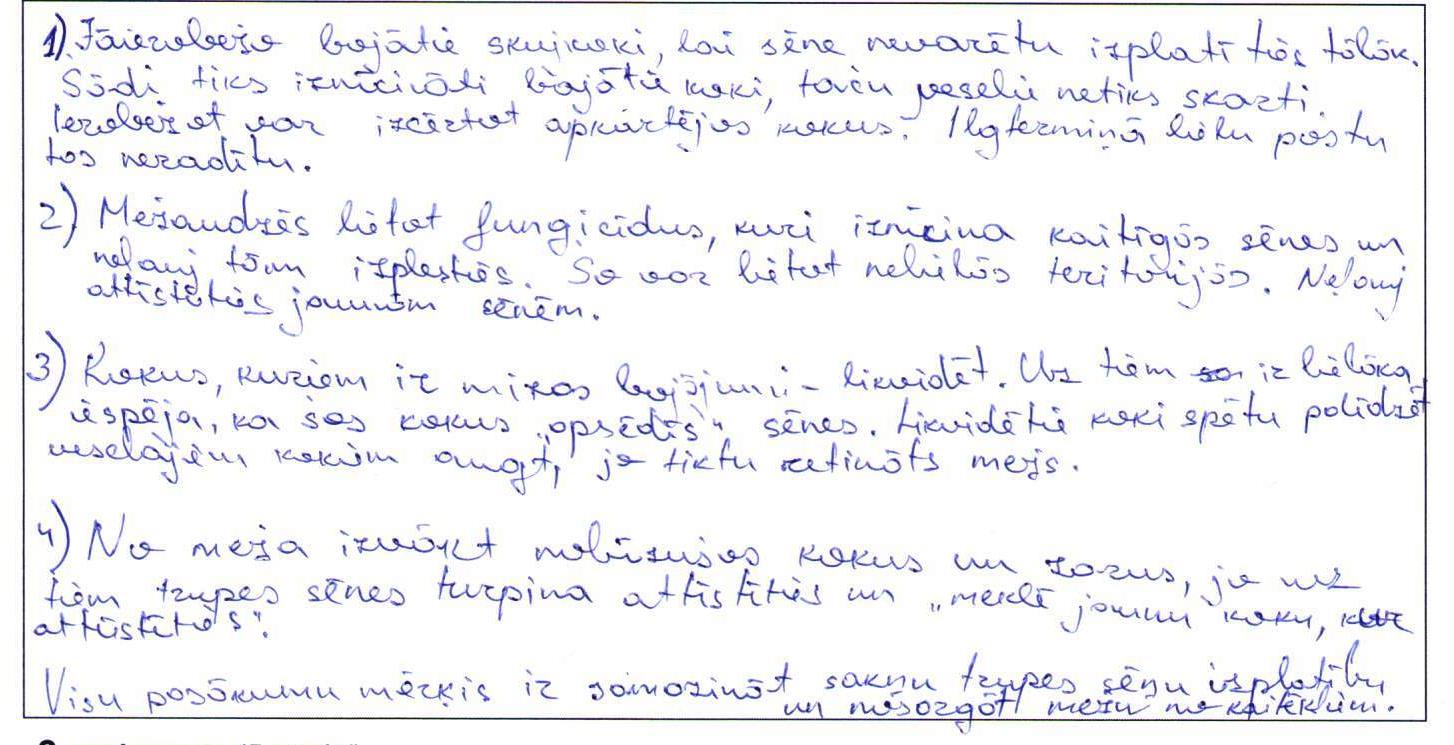 1) Jāierobežo bojātie skujkoki, lai sēne nevarētu izplatīties tālāk.
Šādi tiks iznīcināti bojātie koki, taču veselie netiks skarti.
Ierobežot var izcērtot apkārtējos kokus. Ilgtermiņā lielu postu
tas neradītu.
2) Mežaudzēs lietot fungicīdus, kuri iznīcina kaitīgās sēnes un
neļauj tām izplesties. Šo var lietot nelielās teritorijās. Neļauj
attīstīties jaunām sēnēm.
3) Kokus, kuriem ir mizas bojājumi - likvidēt. Uz tiem ir lielāka
iespēja, ka šos kokus "apsēdīs" sēnes. Likvidētie koki spētu palīdzēt
veselajiem kokiem augt, jo tiktu retināts mežs.
4) No meža izvākt nolūzušos kokus un zarus, jo uz
tiem trupes sēnes turpina attīstīties un "meklē jaunu koku, kur
attīstīties".
Visu pasākumu mērķis ir samazināt sakņu trupes sēņu izplatību
un nosargāt mežu no kaitēkļiem.